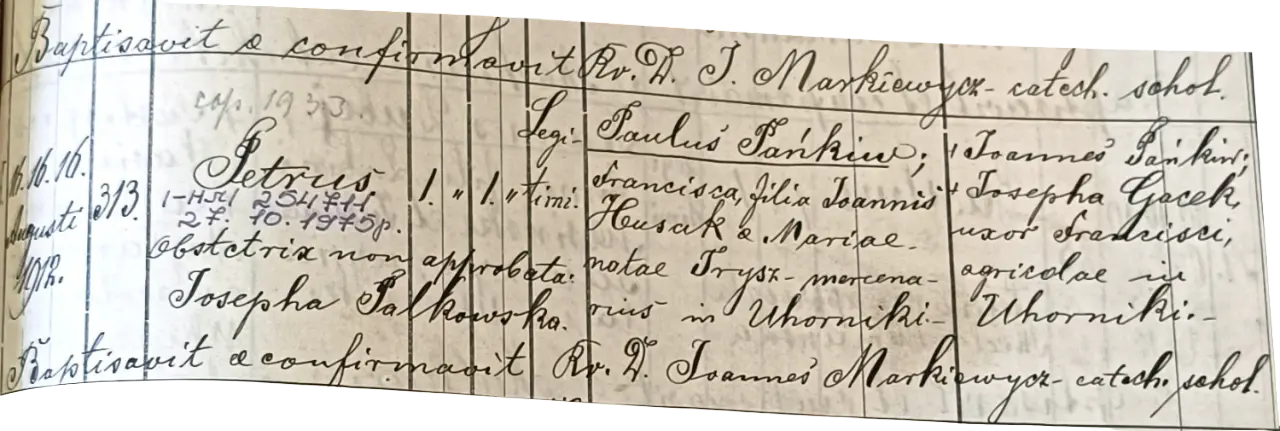 Baptisavit & confirmavit Rv. D. J. Markiewycz - catech. schol.
cop. 1933.
16. 16. 16.
Augusti
1912.
313.
Petrus.
I-НЯ 254711
27. 10. 1975р.
Obstetrix non approbata:
Josepha Palkowska.
1. " 1. "
Legi-
timi.
Paulus Pańkiw;
Francisca, filia Joannis
Husak & Mariae
natae Trysz - mercena-
rius in Uhorniki. -
+ Joannes Pańkiw;
+ Josepha Gacek,
uxor Francisci,
agricolae in
Uhorniki. -
Baptisavit & confirmavit Rv. D. Joannes Markiewycz - catech. schol.